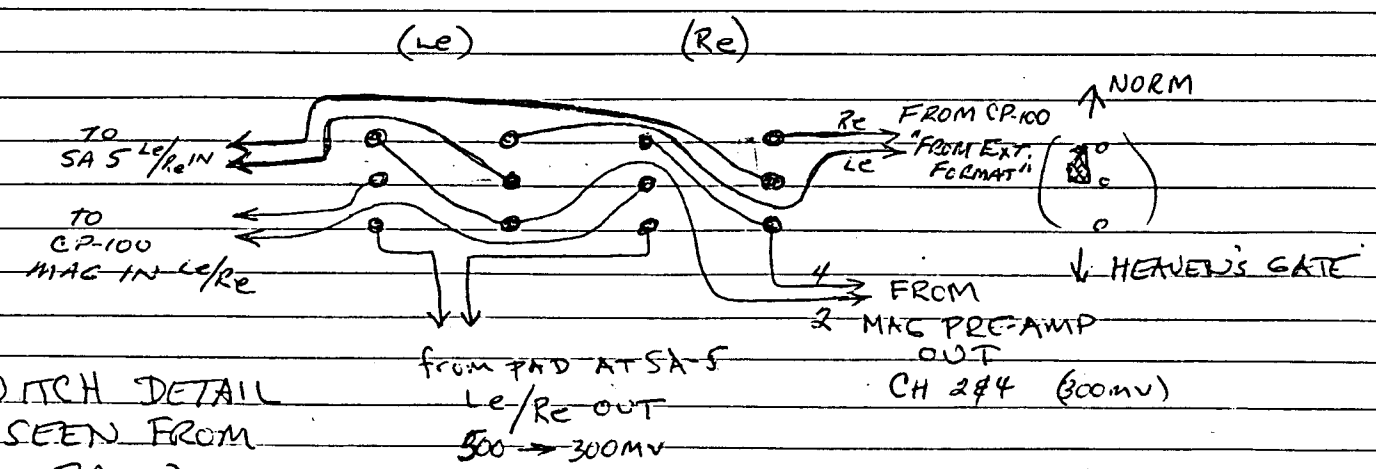 (Le) (Re)
NORM
TO
SA 5 Le/Re IN
Re
Le
FROM CP-100
"FROM EXT.
FORMAT"
TO
CP-100
MAG IN Le/Re
HEAVEN'S GATE
4
2
FROM
MAG PRE-AMP
OUT
CH 2&4 (300mv)
from PAD AT SA-5
Le/Re OUT
500 → 300MV
ITCH DETAIL
SEEN FROM